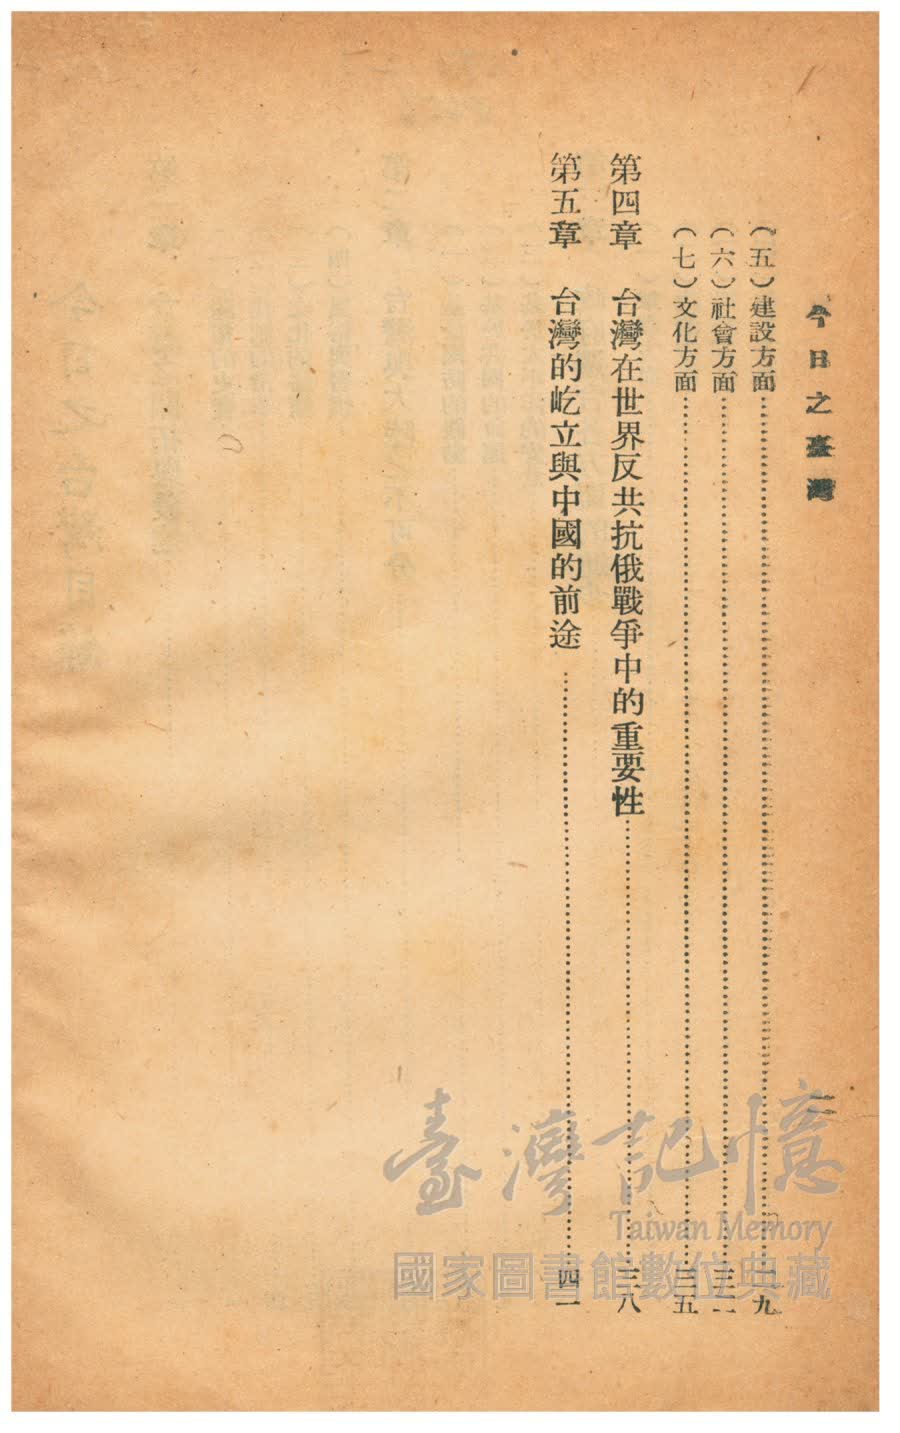 今日之臺灣
二
（五）建設方面……二九
（六）社會方面……三二
（七）文化方面……三五
第四章　台灣在世界反共抗俄戰爭中的重要性……三八
第五章　台灣的屹立與中國的前途……四一
臺灣記憶
Taiwan Memory
國家圖書館數位典藏